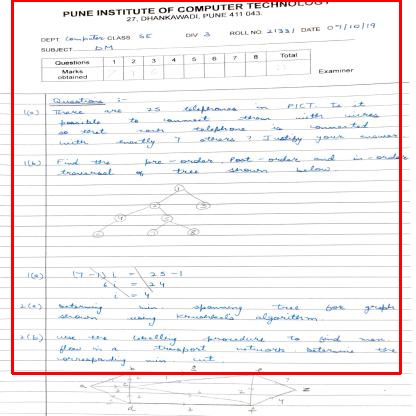 PUNE INSTITUTE OF COMPUTER TECHNOLOGY
27, DHANKAWADI, PUNE 411 043.
DEPT. Computer CLASS SE DIV 3 ROLL NO. 21331 DATE 07/10/19
SUBJECT DM
Questions 1 2 3 4 5 6 7 8 Total
Marks obtained
Examiner
Questions :-
1(a) There are 25 telephones in PICT. Is it
possible to connect them with wires
so that each telephone is connected
with exactly 7 others ? Justify your answer
1(b) Find the pre-order, Post-order and in-order
traversal of tree shown below.
1
2 3
4 5
6 7 8
1(a) (7-1) i = 25 - 1
6i = 24
i = 4
2(a) Determine min. spanning tree for graph
shown using Kruskal's algorithm.
2(b) Use the labelling procedure to find max
flow in a transport network. Determine the
corresponding min cut.
a
z
d
f